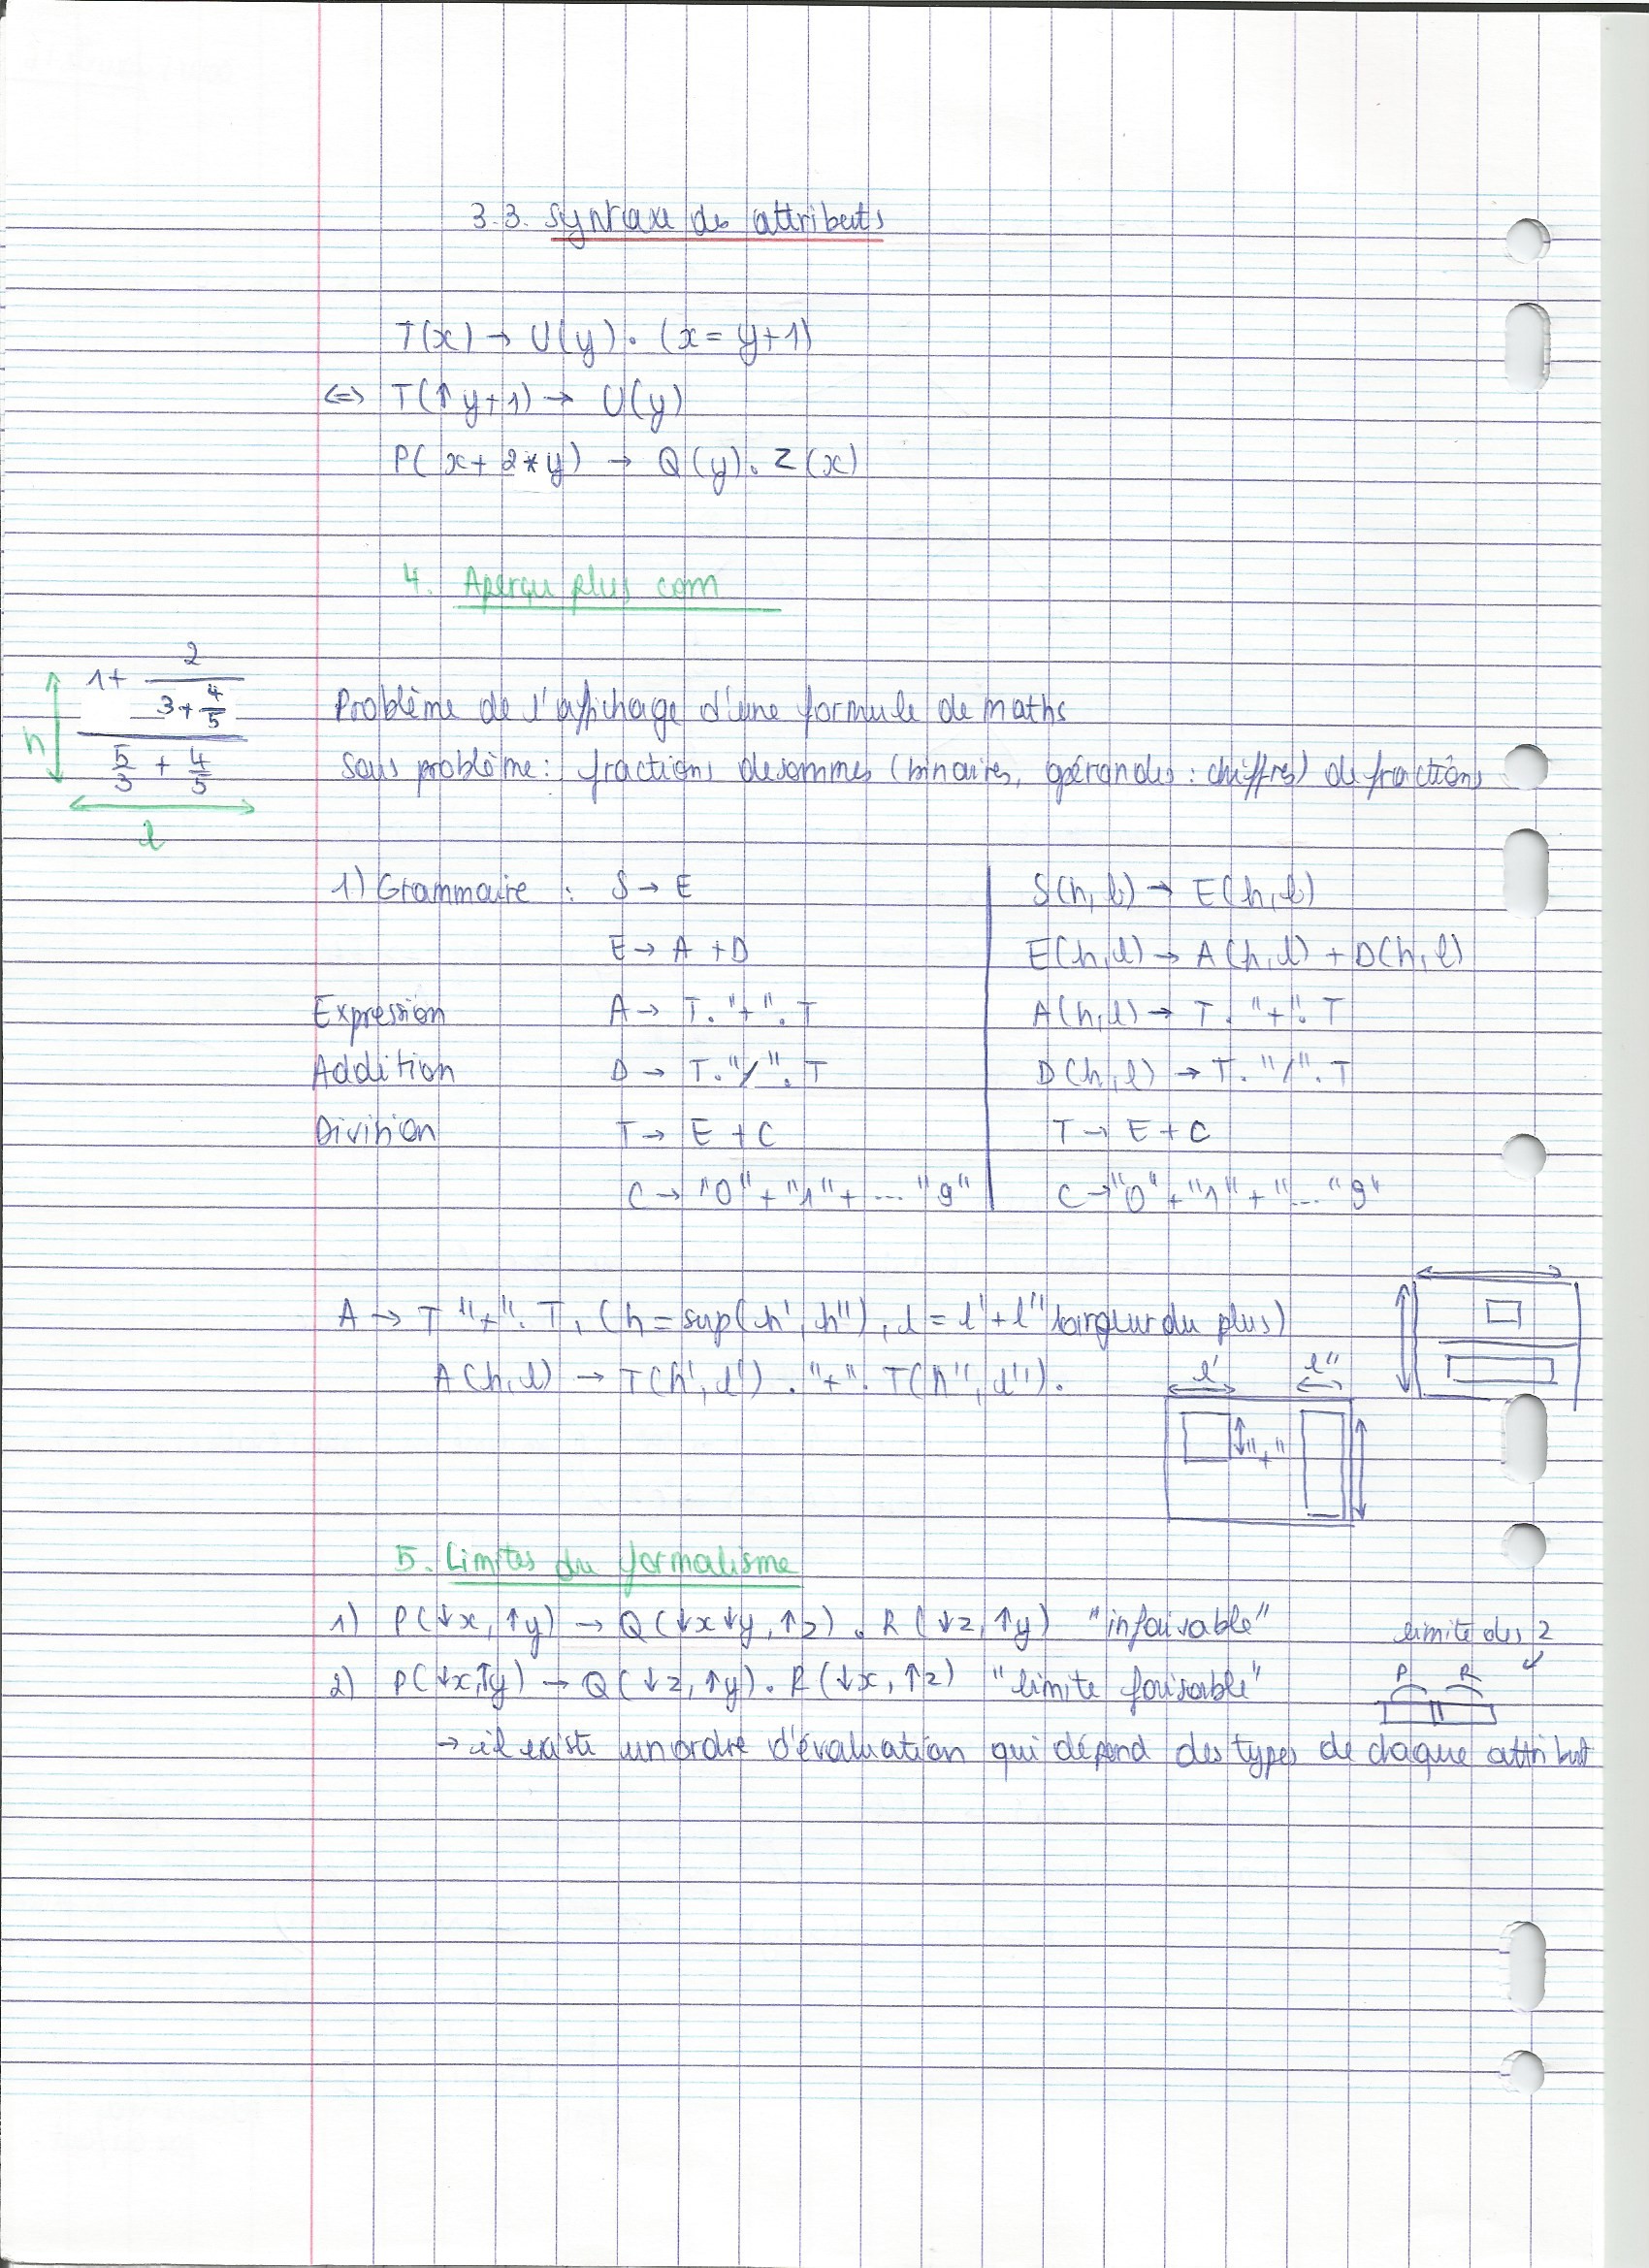 3.3. Syntaxe des attributs
T(x) → U(y) . (x = y+1)
<=> T(↑y+1) → U(y)
P(x+2*y) → Q(y) . Z(x)
4. Aperçu plus com
1+ 2
3+ 4/5
5/3 + 4/5
h
l
Problème de l'affichage d'une formule de maths
Sous problème : fractions de sommes (binaires, opérandes : chiffres) de fractions
1) Grammaire : S → E
E → A + D
Expression A → T . "+" . T
Addition D → T . "/" . T
Division T → E + C
C → "0" + "1" + ... "9"
S(h, l) → E(h, l)
E(h, l) → A(h, l) + D(h, l)
A(h, l) → T . "+" . T
D(h, l) → T . "/" . T
T → E + C
C → "0" + "1" + "... "9"
A → T "+" . T, (h = sup(h', h''), l = l' + l'' largeur du plus)
A(h, l) → T(h', l') . "+" . T(h'', l'').
l' l''
"+"
5. Limites du formalisme
1) P(↓x, ↑y) → Q(↓x↓y, ↑z) . R(↓z, ↑y) "infaisable"
limite des 2
2) P(↓x,↑y) → Q(↓z, ↑y) . R(↓x, ↑z) "limite faisable"
P R
→ il existe un ordre d'évaluation qui dépend des types de chaque attribut